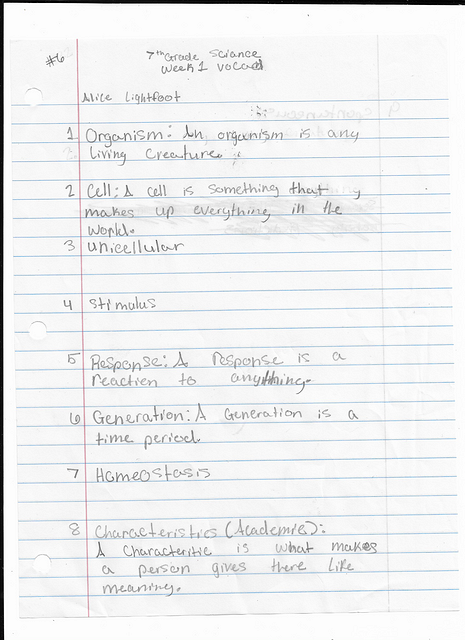 #6
7th Grade Sciance
Week 1 Vocab
Alice Lightfoot
1 Organism: An organism is any
living creature.
2 Cell: A cell is something that
makes up everything in the
world.
3 unicellular
4 Stimulus
5 Response: A response is a
reaction to anything.
6 Generation: A Generation is a
time period.
7 Homeostasis
8 Characteristics (Academic):
A characteritic is what makes
a person gives there life
meaning.